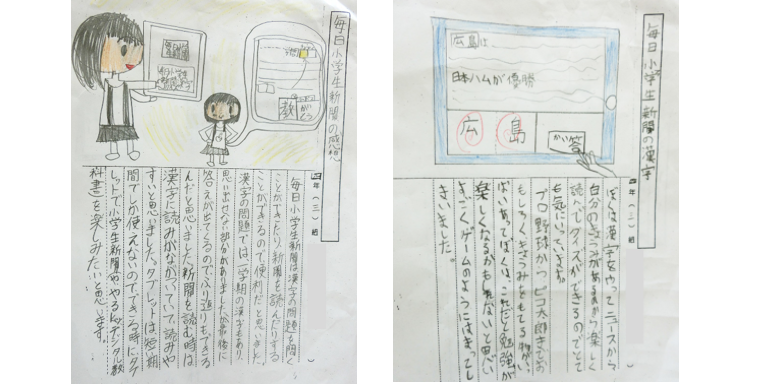 毎日小学生新聞の感想
四年(三)組
毎日小学生新聞は漢字の問題を聞く
ことができたり、新聞を読んだりする
ことができるので、便利だと思いました。
漢字の問題では、一学期の漢字もあり、
思い出せない部分がありましたが最後に
答えが出てくるので、ふり返りもできる
んだと思いました。新聞を読む時は
漢字に読みがながついていて、読みや
すいと思いました。タブレットは短期
間でしか使えないので、できる時にタブ
レットで小学生新聞や、やるキッズ、デジタル教
科書を楽しみたいと思います。
毎日小学生新聞の漢字
広島は
日本ハムが優勝
広島
かい答
四年(二)組
ぼくは漢字をやってニュースから
自分のきょうみがあるものから楽しく
読んでクイズができるのでとて
も気にいっています。
プロ野球かつピコ太郎までお
もしろくきょうみをもてる物がい
ぱいあってぼくは、これだと勉強が
楽しくなるかもしれないと思い
すごくゲームのようにはまってし
まいました。